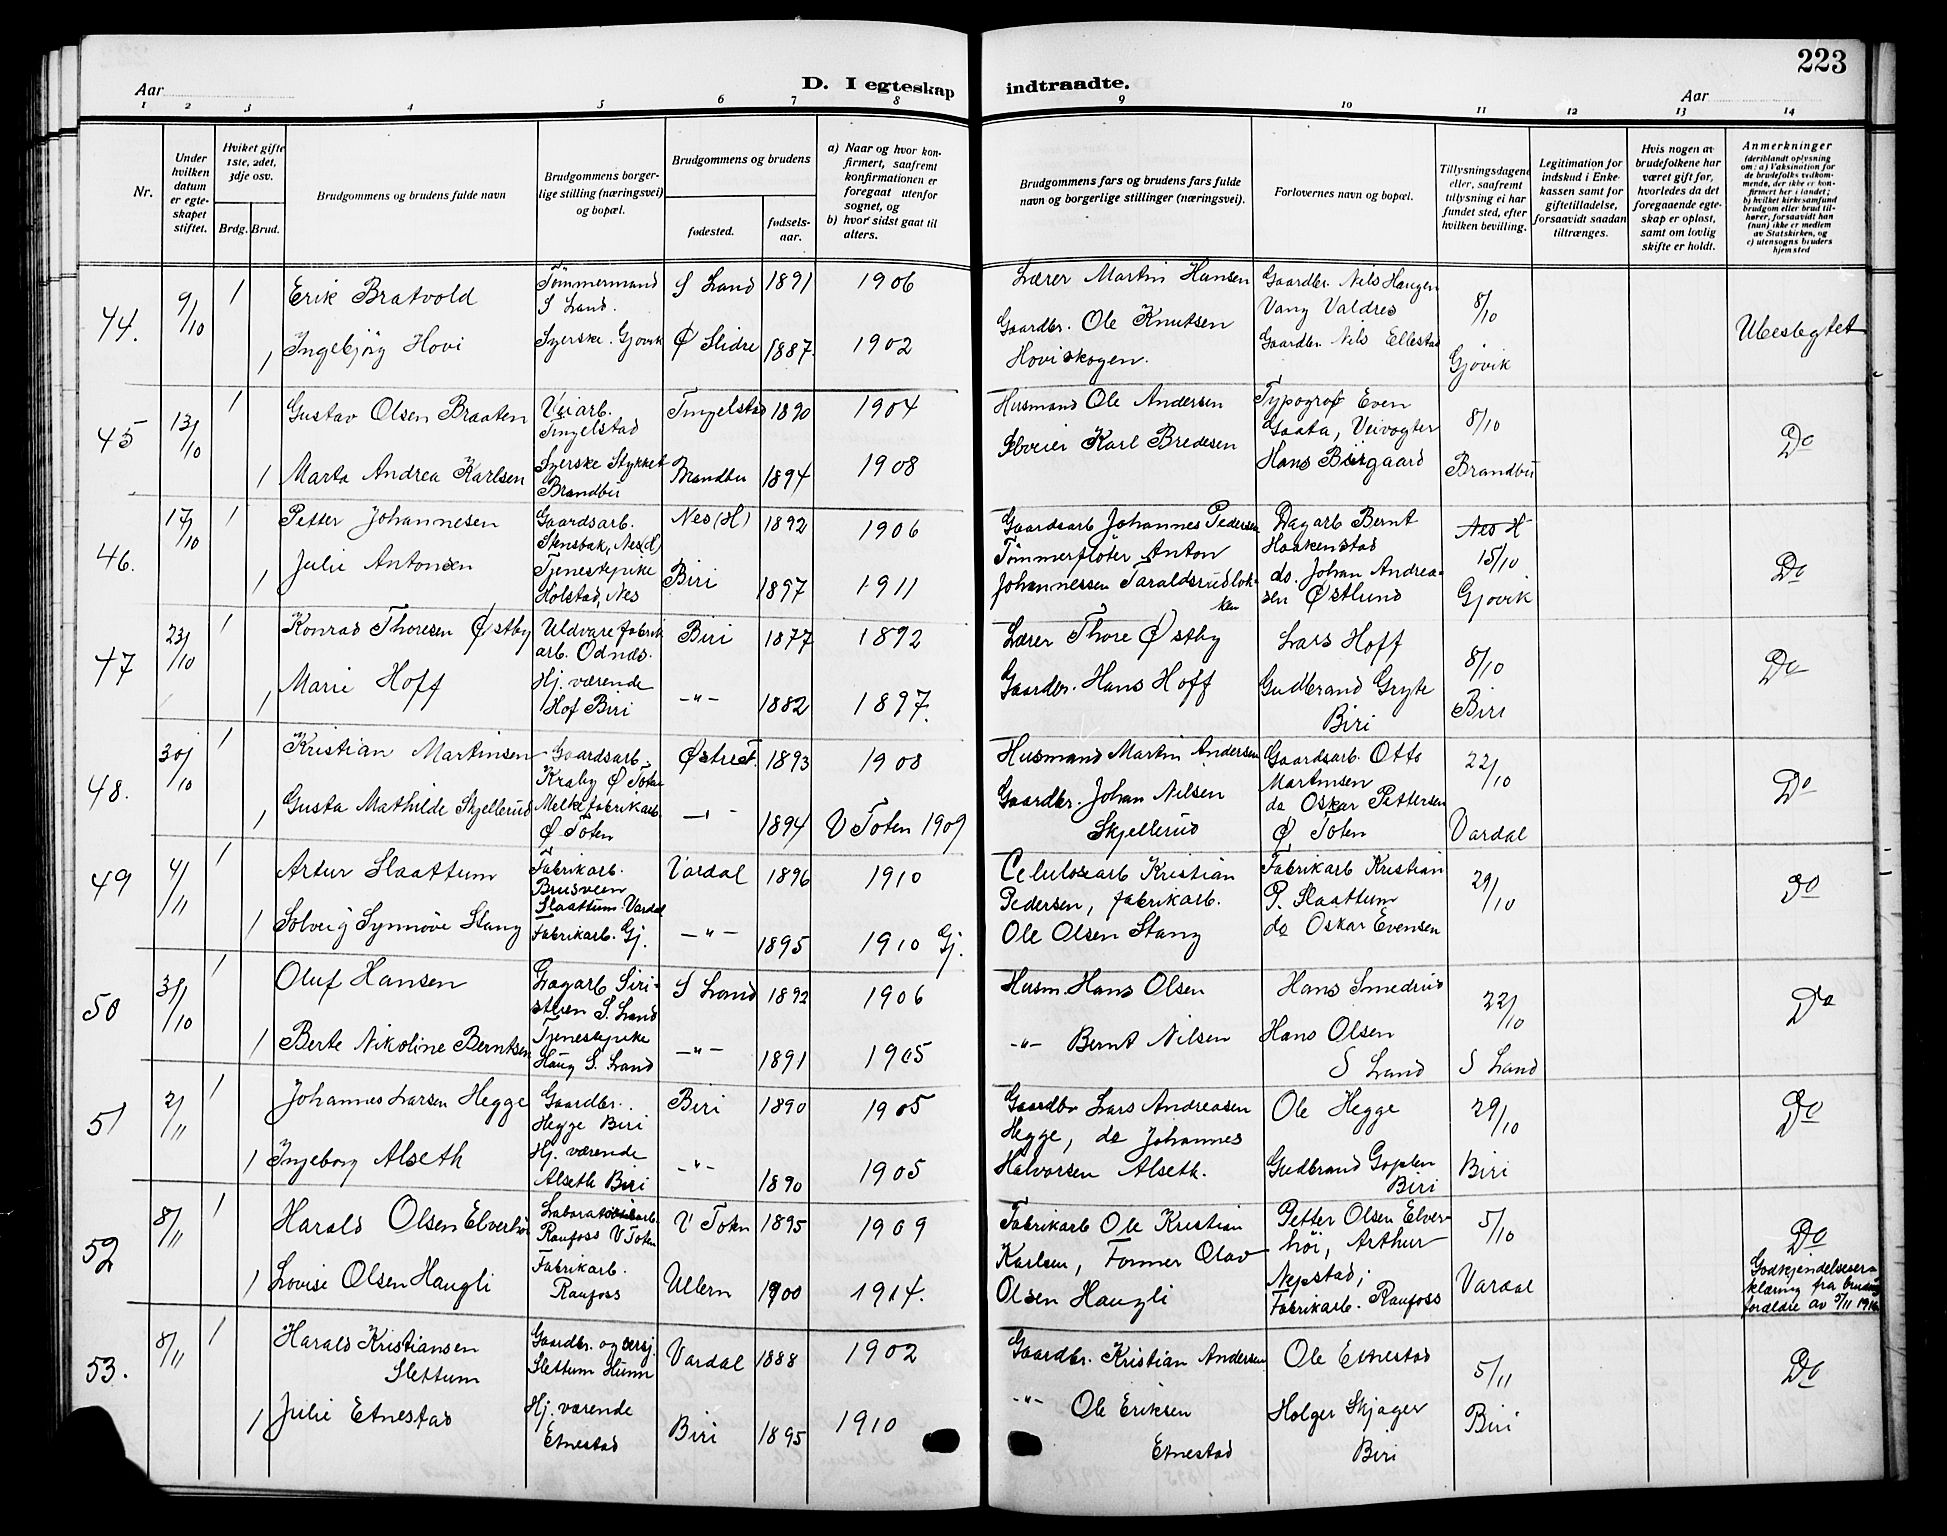 223
D. I egteskap indtraadte.
Aar
Aar
1 2 3 4 5 6 7 8 9 10 11 12 13 14
Nr.
Under hvilken datum er egteskapet stiftet.
Hvilket gifte 1ste, 2det, 3dje osv.
Brdg. Brud.
Brudgommens og brudens fulde navn
Brudgommens borgerlige stilling (næringsvei) og bopæl.
Brudgommens og brudens
fødested.
fødselsaar.
a) Naar og hvor konfirmert, saafremt konfirmationen er foregaat utenfor sognet, og
b) hvor sidst gaat til alters.
Brudgommens fars og brudens fars fulde navn og borgerlige stillinger (næringsvei).
Forlovernes navn og bopæl.
Tillysningsdagene eller, saafremt tillysning ei har fundet sted, efter hvilken bevilling.
Legitimation for indskud i Enkekassen samt for giftetilladelse, forsaavidt saadan tiltrænges.
Hvis nogen av brudefolkene har været gift før, hvorledes da det foregaaende egteskap er opløst, samt om lovlig skifte er holdt.
Anmerkninger
(deriblandt oplysning om: a) Vaksination for de brudefolks vedkommende, der ikke er konfirmert her i landet; b) hvilket kirkesamfund brudgom eller brud tilhører, forsaavidt han (hun) ikke er medlem av Statskirken, og c) utensogns bruders hjemsted
44. 9/10 1 Erik Bratvold Tømmermand S Land. S Land 1891 1906 Lærer Martin Hansen Gaardbr. Nils Haugen Vang Valdres 8/10
1 Ingebjörg Hovi Syerske. Gjøvik Ø Slidre 1887. 1902 Gaardbr. Ole Knutsen Hoviskogen. Gaardbr. Nils Ellestad Gjøvik Ubeslegtet
45 13/10 1 Gustav Olsen Braaten Veiarb. Tingelstad Tingelstad 1890 1904 Husmand Ole Andersen Typograf Even Gaata, Veivogter 8/10
1 Marta Andrea Karlsen Syerske Stykket Brandbu Brandbu 1894 1908 Karl Bredesen Hans Brandbu Do
46. 17/10 1 Petter Johannesen Gaardsarb. Stensbak, Nes(H) Nes (H) 1892 1906 Gaardsarb Johannes Pedersen Dagarb Bernt Haakenstad Nes H 15/10
1 Julie Antonsen Tjenestepike Holstad, Nes Biri 1897 1911 Tømmerfløter Anton Johannessen Taraldsrudløkken do. Johan Andreasen Østlund Gjøvik Do
47 23/10 1 Konrad Thoresen Østby Uldvarefabrikarb. Odnæs. Biri 1877 1892 Lærer Thore Østby Lars Hoff 8/10
1 Marie Hoff Hj. værende Hof Biri -"- 1882 1897. Gaardbr. Hans Hoff Gudbrand Gryte Biri Biri Do
48. 30/10 1 Kristian Martinsen Gaardsarb. Kraby Ø Toten Østre T. 1893 1908 Husmand Martin Andersen Gaardsarb. Otto Martinsen 22/10
1 Gusta Mathilde Skjellerud Melkefabrikarb. Ø Toten -"- 1894 V Toten 1909 Gaardbr. Johan Nilsen Skjellerud do Oskar Pettersen Ø Toten Vardal Do
49 4/11 1 Artur Slaattum Fabrikarb. Brusveen Slaattum. Vardal Vardal 1896 1910 Celulosearb Kristian Pedersen, Fabrikarb Kristian P. Slaattum 29/10
1 Solveig Synnöve Stang Fabrikarb. Gj. -"- 1895 1910 Gj. fabrikarb. Ole Olsen Stang do Oskar Evensen Do
50 31/10 1 Oluf Hansen Dagarb S. Land S Land 1892 1906 Husm. Hans Olsen Hans Smedrud 22/10
1 Berte Nikoline Berntsen Tjenestepike Haug S. Land -"- 1891 1905 -"- Bernt Nilsen Hans Olsen S Land S Land Do
51 2/11 1 Johannes Larsen Hegge Gaardbr. Hegge Biri Biri 1890 1905 Gaardbr Lars Andreasen Hegge, Ole Hegge 29/10
1 Ingeborg Alseth Hj. værende Alseth Biri -"- 1890 1905 do Johannes Halvorsen Alseth. Gudbrand Goplen Biri Biri Do
52 8/11 1 Harald Olsen Elverhøi Laboratoriearb. Raufoss V Toten V Toten 1895 1909 Fabrikarb Ole Kristian Karlsen, Petter Olsen Elverhöi, 5/10
1 Lovise Olsen Haugli Fabrikarb. Raufoss Ullern 1900 1914. Former Olav Olsen Haugli Arthur Nepstad; Fabrikarb. Raufoss Vardal Do Godkjendelseserklæring fra brudens forældre av 5/11 1916
53. 8/11 1 Harald Kristiansen Slettum Gaardbr. og Slettum Hunn Vardal 1888 1902 Gaardbr. Kristian Andersen Ole Etnestad 5/11
1 Julie Etnestad Hj. værende Etnestad Biri 1895 1910 -"- Ole Eriksen Etnestad Holger Skjager Biri Biri Do